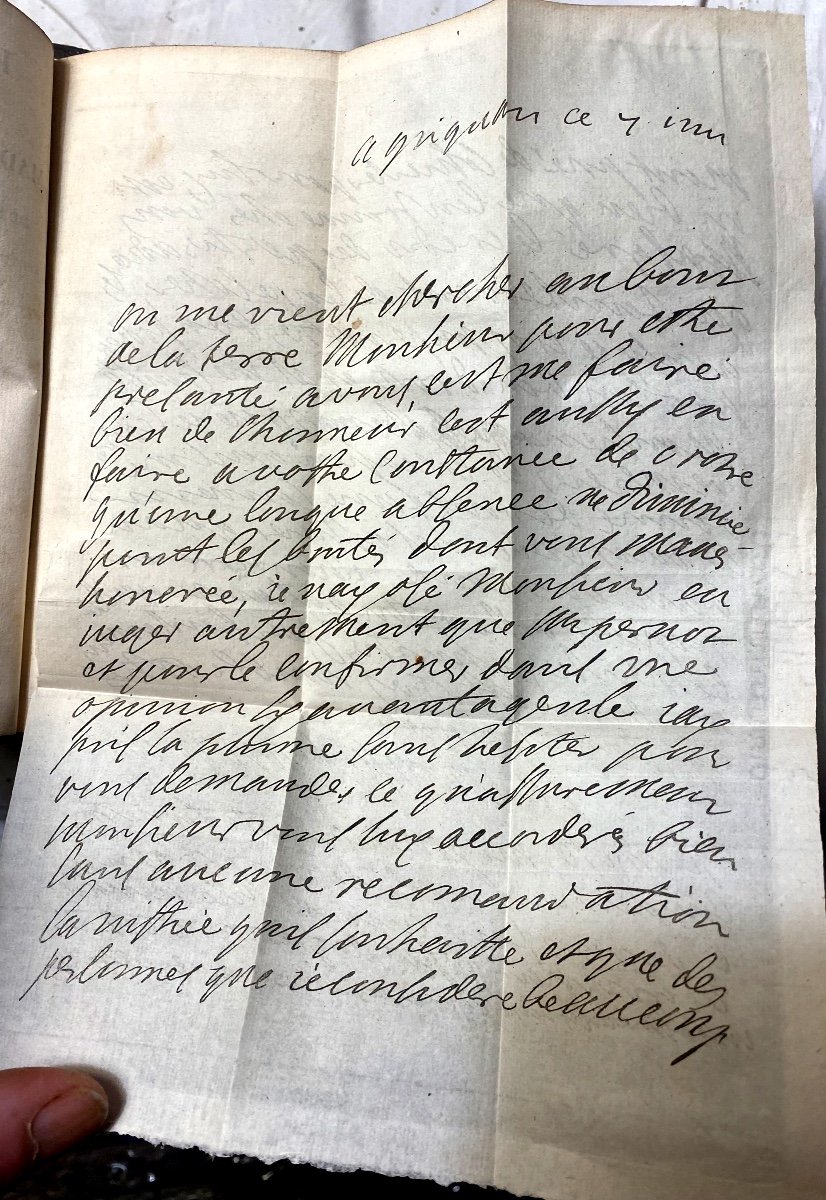 a grignan ce 7 iuin
on me vient chercher au bout
de la terre Monsieur pour estre
presanté a vous, cest me faire
bien de lhonneur cest aussy en
faire a vostre constance de croire
qu'une longue absence ne diminüe
point les bontés dont vous mavés
honorée, ie nay osé Monsieur en
iuger autrement que
et pour le confirmer dans une
opinion sy avantageuse iay
pris la plume sans hesiter pour
vous demander ce qu'assurement
monsieur vous luy accorderés bien
sans aucune recomandation
la iustice quil souhaitte et que des
personnes que ie considere beaucoup